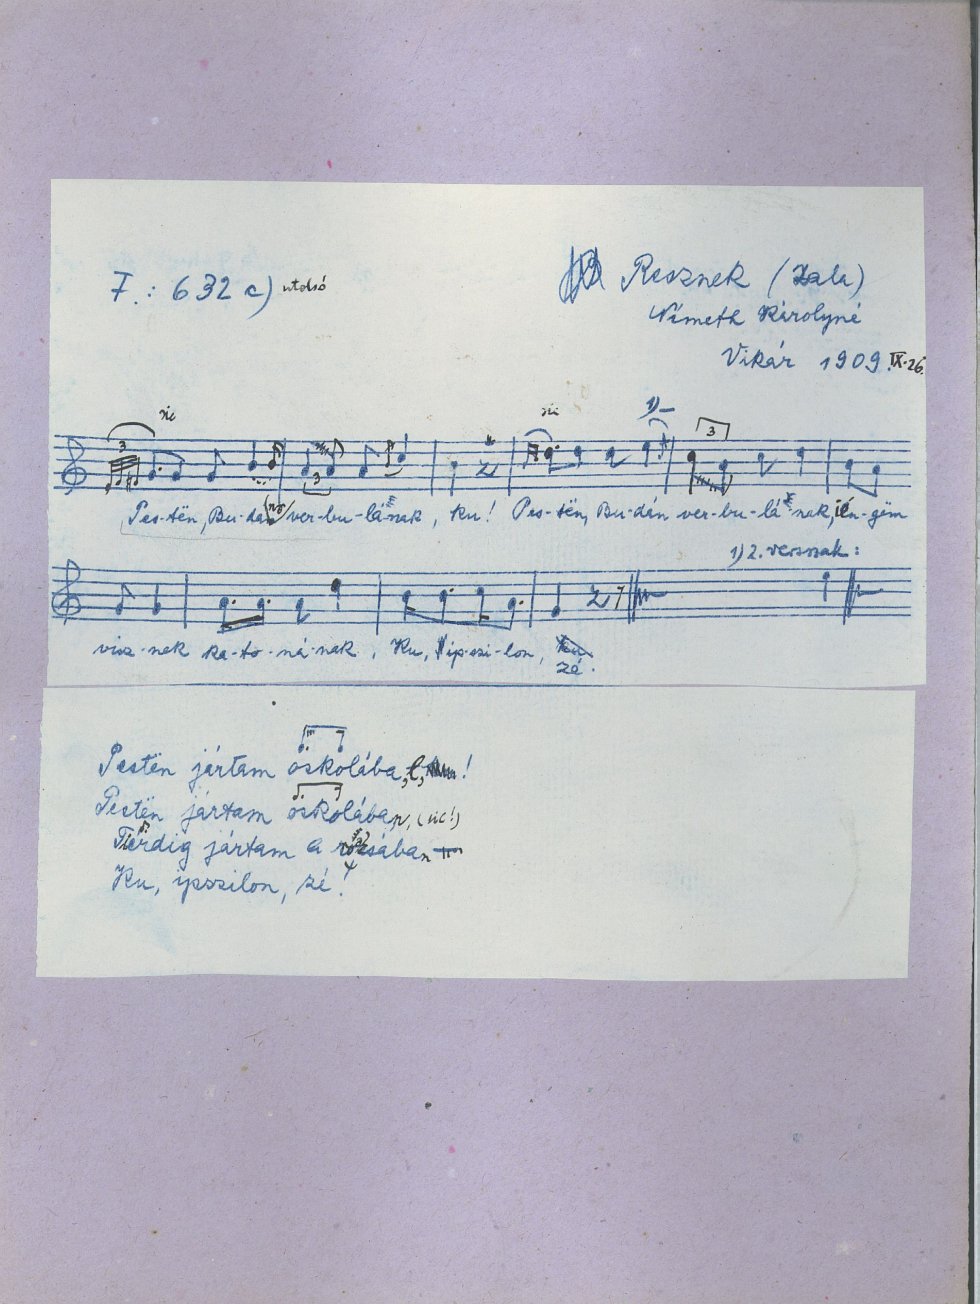 F.: 632 c) utolsó
Resznek (Zala)
Németh Károlyné
Vikár 1909. IX. 26.
sic
1)
3
3
3
Pes-tën, Bu-dán ver-bu-lá-nak, ku! Pes-tën, Budán ver-bu-lá-nak, én-gëm
1) 2. versszak:
visz-nek ka-to-ná-nak, Ku, ip-szi-lon,
zé.
Pestën jártam oskolába, !
Pestën jártam oskolába, (sic!)
jártam a
Ku, ipszilon, zé!